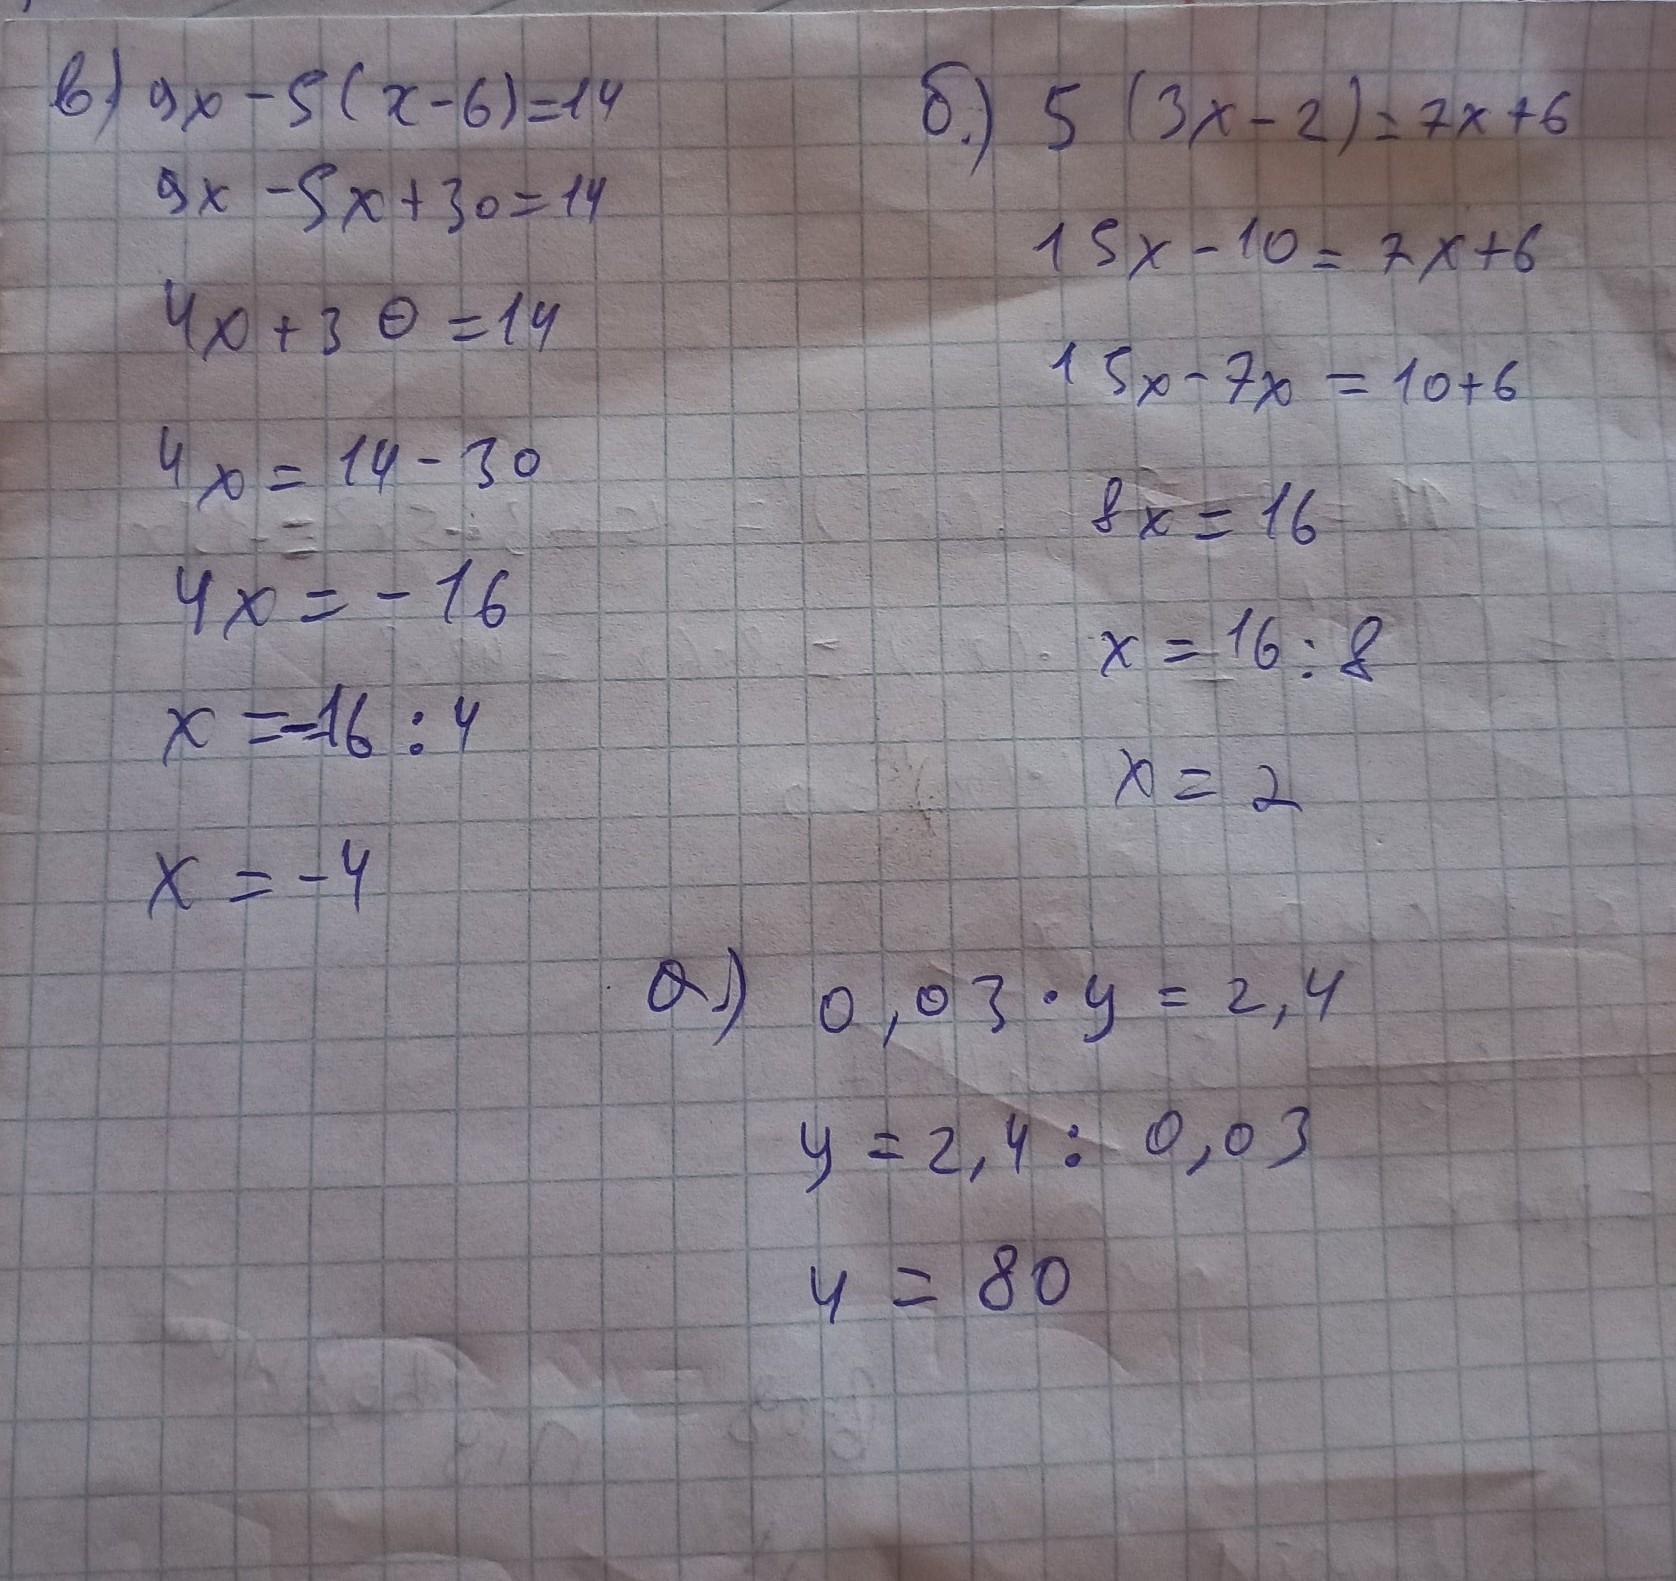 в) 9x-5(x-6)=14
9x-5x+30=14
4x+30=14
4x=14-30
4x=-16
x=-16:4
x=-4
б.) 5(3x-2)=7x+6
15x-10=7x+6
15x-7x=10+6
8x=16
x=16:8
x=2
а.) 0,03·y=2,4
y=2,4:0,03
y=80